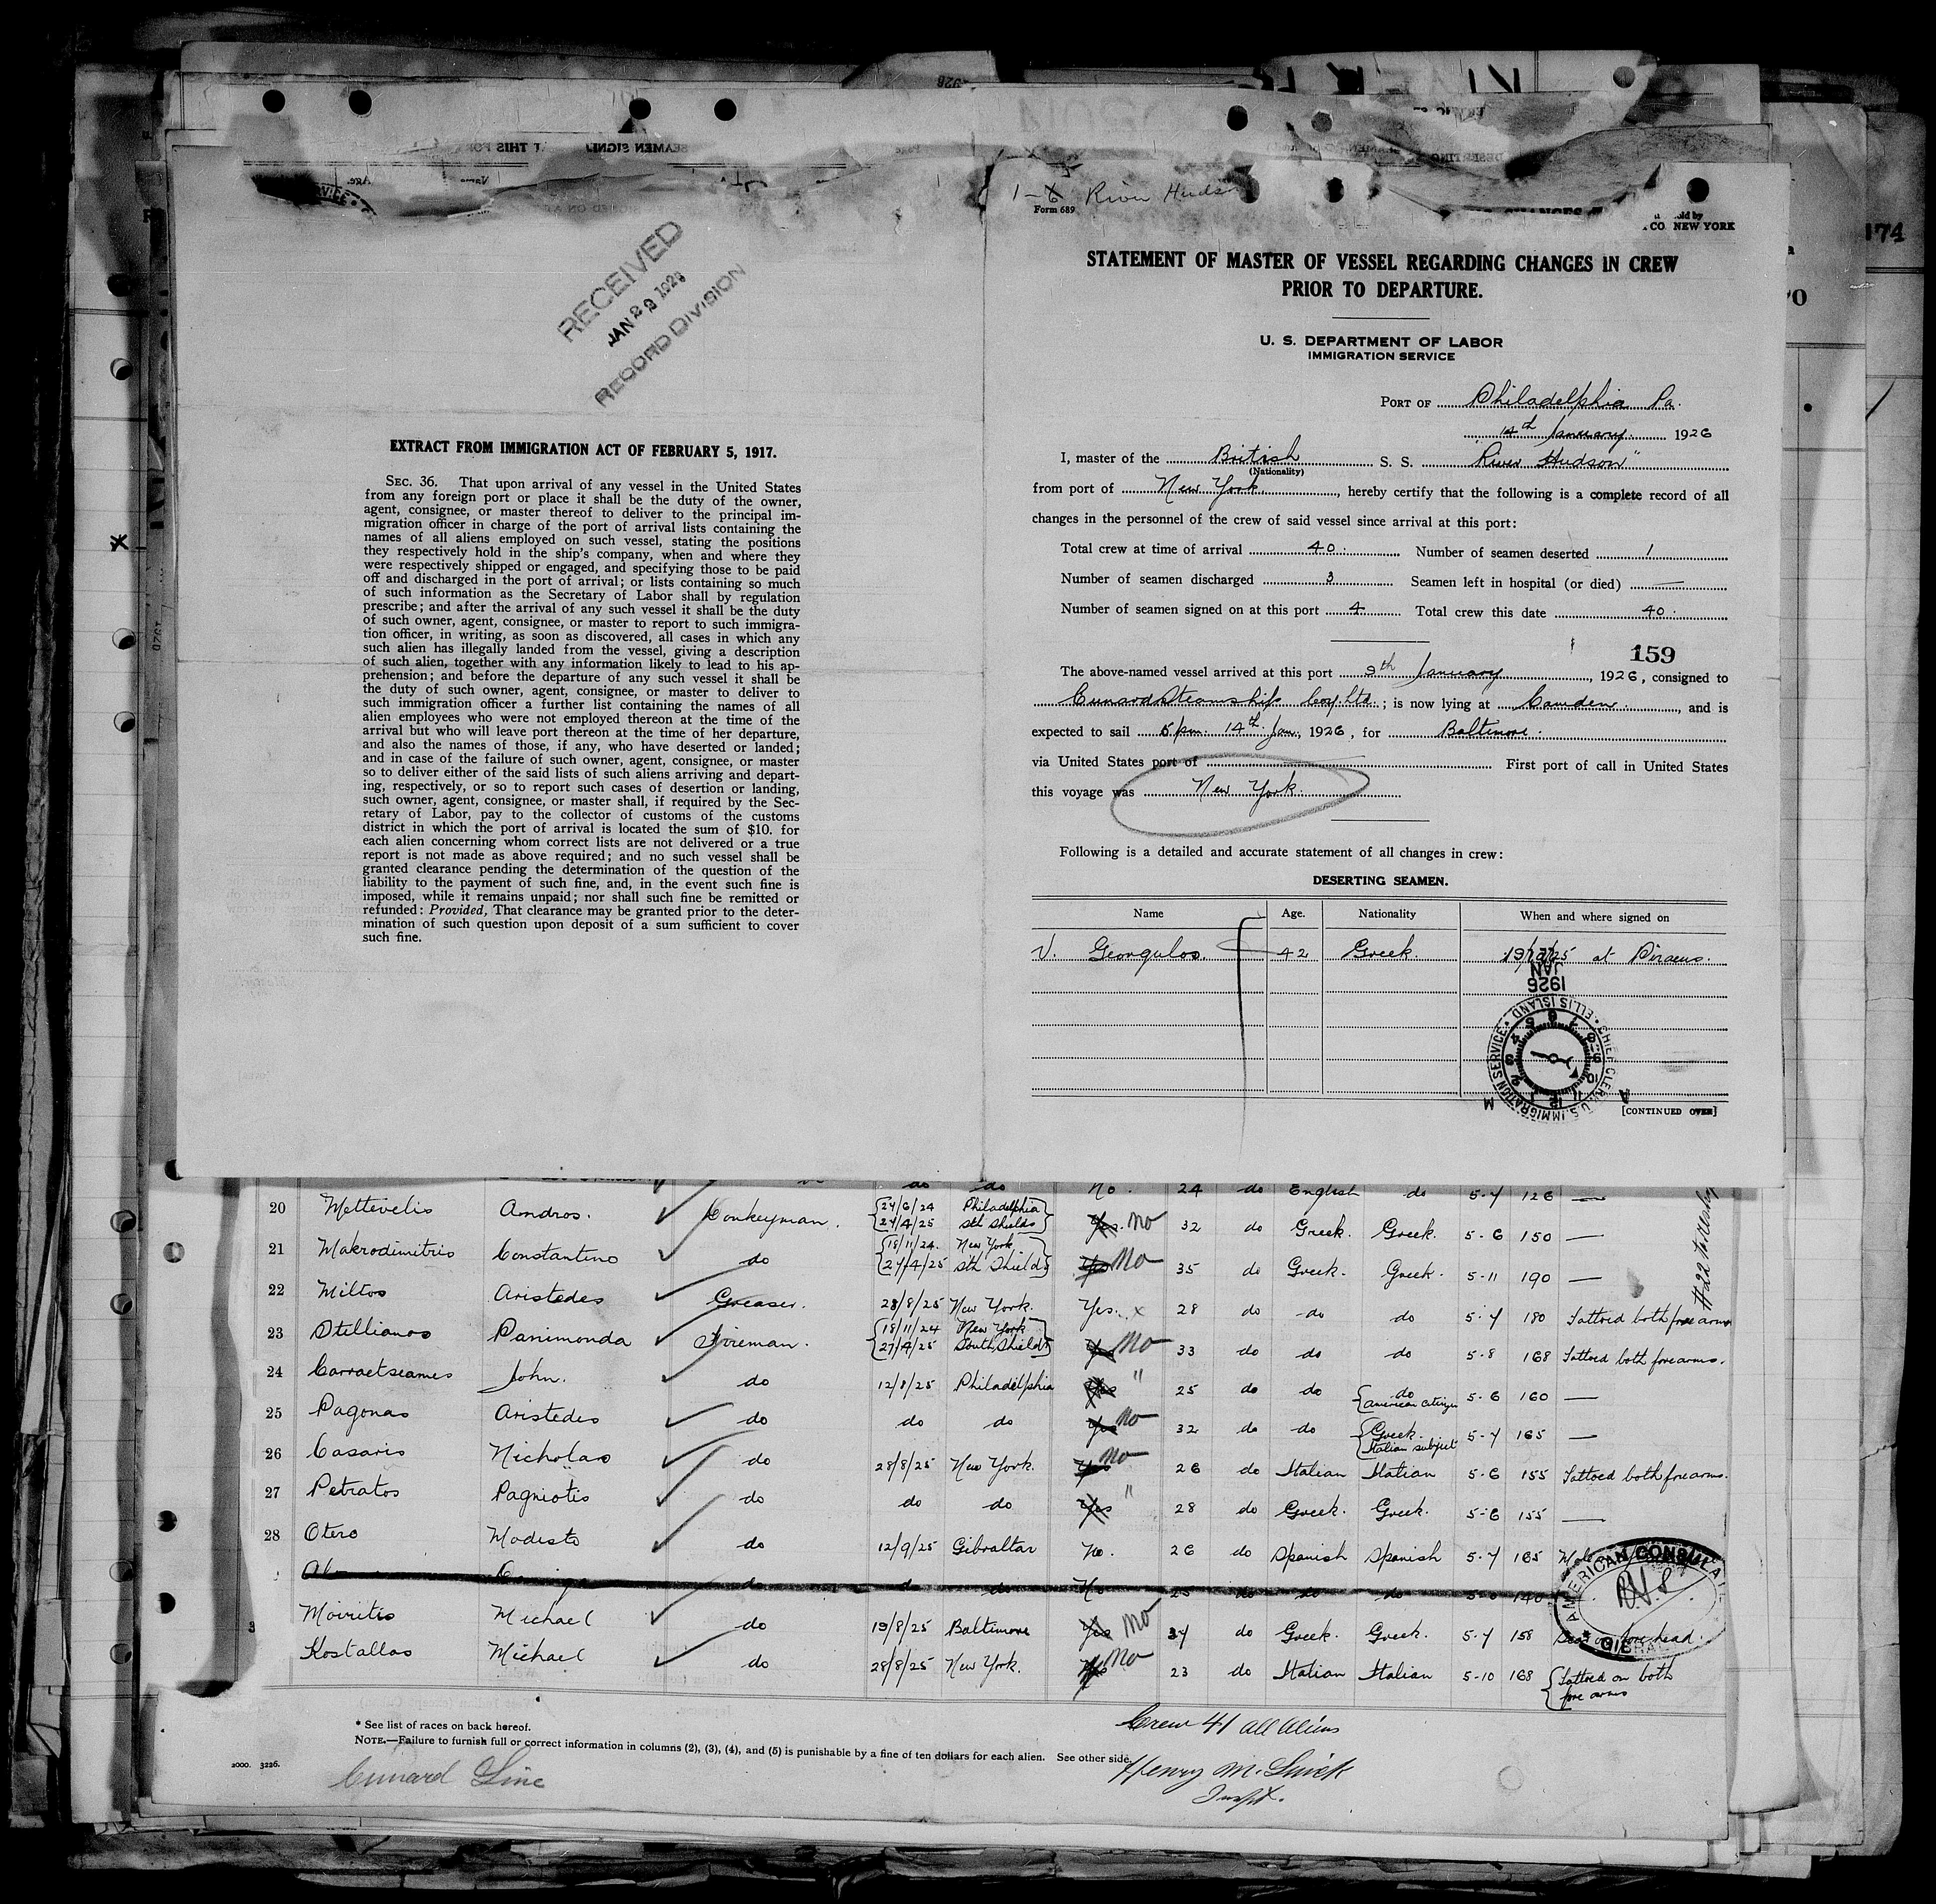 RECEIVED
JAN 29 1926
RECORD DIVISION
EXTRACT FROM IMMIGRATION ACT OF FEBRUARY 5, 1917.
SEC. 36. That upon arrival of any vessel in the United States
from any foreign port or place it shall be the duty of the owner,
agent, consignee, or master thereof to deliver to the principal im-
migration officer in charge of the port of arrival lists containing the
names of all aliens employed on such vessel, stating the positions
they respectively hold in the ship's company, when and where they
were respectively shipped or engaged, and specifying those to be paid
off and discharged in the port of arrival; or lists containing so much
of such information as the Secretary of Labor shall by regulation
prescribe; and after the arrival of any such vessel it shall be the duty
of such owner, agent, consignee, or master to report to such immigra-
tion officer, in writing, as soon as discovered, all cases in which any
such alien has illegally landed from the vessel, giving a description
of such alien, together with any information likely to lead to his ap-
prehension; and before the departure of any such vessel it shall be
the duty of such owner, agent, consignee, or master to deliver to
such immigration officer a further list containing the names of all
alien employees who were not employed thereon at the time of the
arrival but who will leave port thereon at the time of her departure,
and also the names of those, if any, who have deserted or landed;
and in case of the failure of such owner, agent, consignee, or master
so to deliver either of the said lists of such aliens arriving and depart-
ing, respectively, or so to report such cases of desertion or landing,
such owner, agent, consignee, or master shall, if required by the Sec-
retary of Labor, pay to the collector of customs of the customs
district in which the port of arrival is located the sum of $10. for
each alien concerning whom correct lists are not delivered or a true
report is not made as above required; and no such vessel shall be
granted clearance pending the determination of the question of the
liability to the payment of such fine, and, in the event such fine is
imposed, while it remains unpaid; nor shall such fine be remitted or
refunded: Provided, That clearance may be granted prior to the deter-
mination of such question upon deposit of a sum sufficient to cover
such fine.
1-6 River Huds
Form 689
old by
CO. NEW YORK
174
STATEMENT OF MASTER OF VESSEL REGARDING CHANGES IN CREW
PRIOR TO DEPARTURE.
U. S. DEPARTMENT OF LABOR
IMMIGRATION SERVICE
PORT OF Philadelphia Pa.
14th January 1926
I, master of the British S. S. "River Hudson"
(Nationality)
from port of New York, hereby certify that the following is a complete record of all
changes in the personnel of the crew of said vessel since arrival at this port:
Total crew at time of arrival 40. Number of seamen deserted 1
Number of seamen discharged 3 Seamen left in hospital (or died) —
Number of seamen signed on at this port 4 Total crew this date 40.
159
The above-named vessel arrived at this port 9th January, 1926, consigned to
Cunard Steamship Coy Ltd.; is now lying at Camden, and is
expected to sail 5 pm 14th Jan, 1926, for Baltimore.
via United States port of First port of call in United States
this voyage was New York.
Following is a detailed and accurate statement of all changes in crew:
DESERTING SEAMEN.
Name Age. Nationality When and where signed on
V. Georgulos. 42 Greek. 19/12/25 at Piraeus.
JAN
1926
CHIEF CLERK U.S. IMMIGRATION SERVICE • ELLIS ISLAND
A M
[CONTINUED OVER]
do do No. 24 do English do 5-7 126 —
20 Mettevelis Andros. Donkeyman. 24/6/24 Philadelphia 24/4/25 Sth Shields Yes. No 32 do Greek. Greek. 5-6 150 —
21 Makrodimitris Constantino do 18/11/24. New York 27/4/25 Sth Shields Yes No 35 do Greek. Greek. 5-11 190 —
22 Miltos Aristedes Greaser. 28/8/25 New York. Yes. x 28 do do do 5-7 180 Tattoed both fore arms
23 Stellianos Panimonda Fireman. 18/11/24 New York 27/4/25 South Shields Yes No 33 do do do 5-8 168 Tattoed both fore arms.
24 Carraetseames John. do 12/8/25 Philadelphia Yes " 25 do do do American citizen 5-6 160 —
25 Pagonas Aristedes do do do Yes No 32 do do Greek. Italian subject 5-7 165 —
26 Casaris Nicholas do 28/8/25 New York. Yes No 26 do Italian Italian 5-6 155 Tattoed both fore arms.
27 Petratos Pagniotis do do do Yes " 28 do Greek. Greek. 5-6 155 —
28 Otero Modesto do 12/9/25 Gibraltar No. 26 do Spanish Spanish 5-7 165
do do do No 25 do do do 5-0 140
Moiritis Michael do 19/8/25 Baltimore Yes No 37 do Greek. Greek. 5-7 158 Scar on fore head.
Kostallas Michael do 28/8/25 New York. Yes No 23 do Italian Italian 5-10 168 Tattoed on both fore arms
AMERICAN CONSULA
* See list of races on back hereof.
NOTE.—Failure to furnish full or correct information in columns (2), (3), (4), and (5) is punishable by a fine of ten dollars for each alien. See other side.
2000. 3226.
Cunard Line
Crew 41 all Aliens
Henry M.
Inspt.